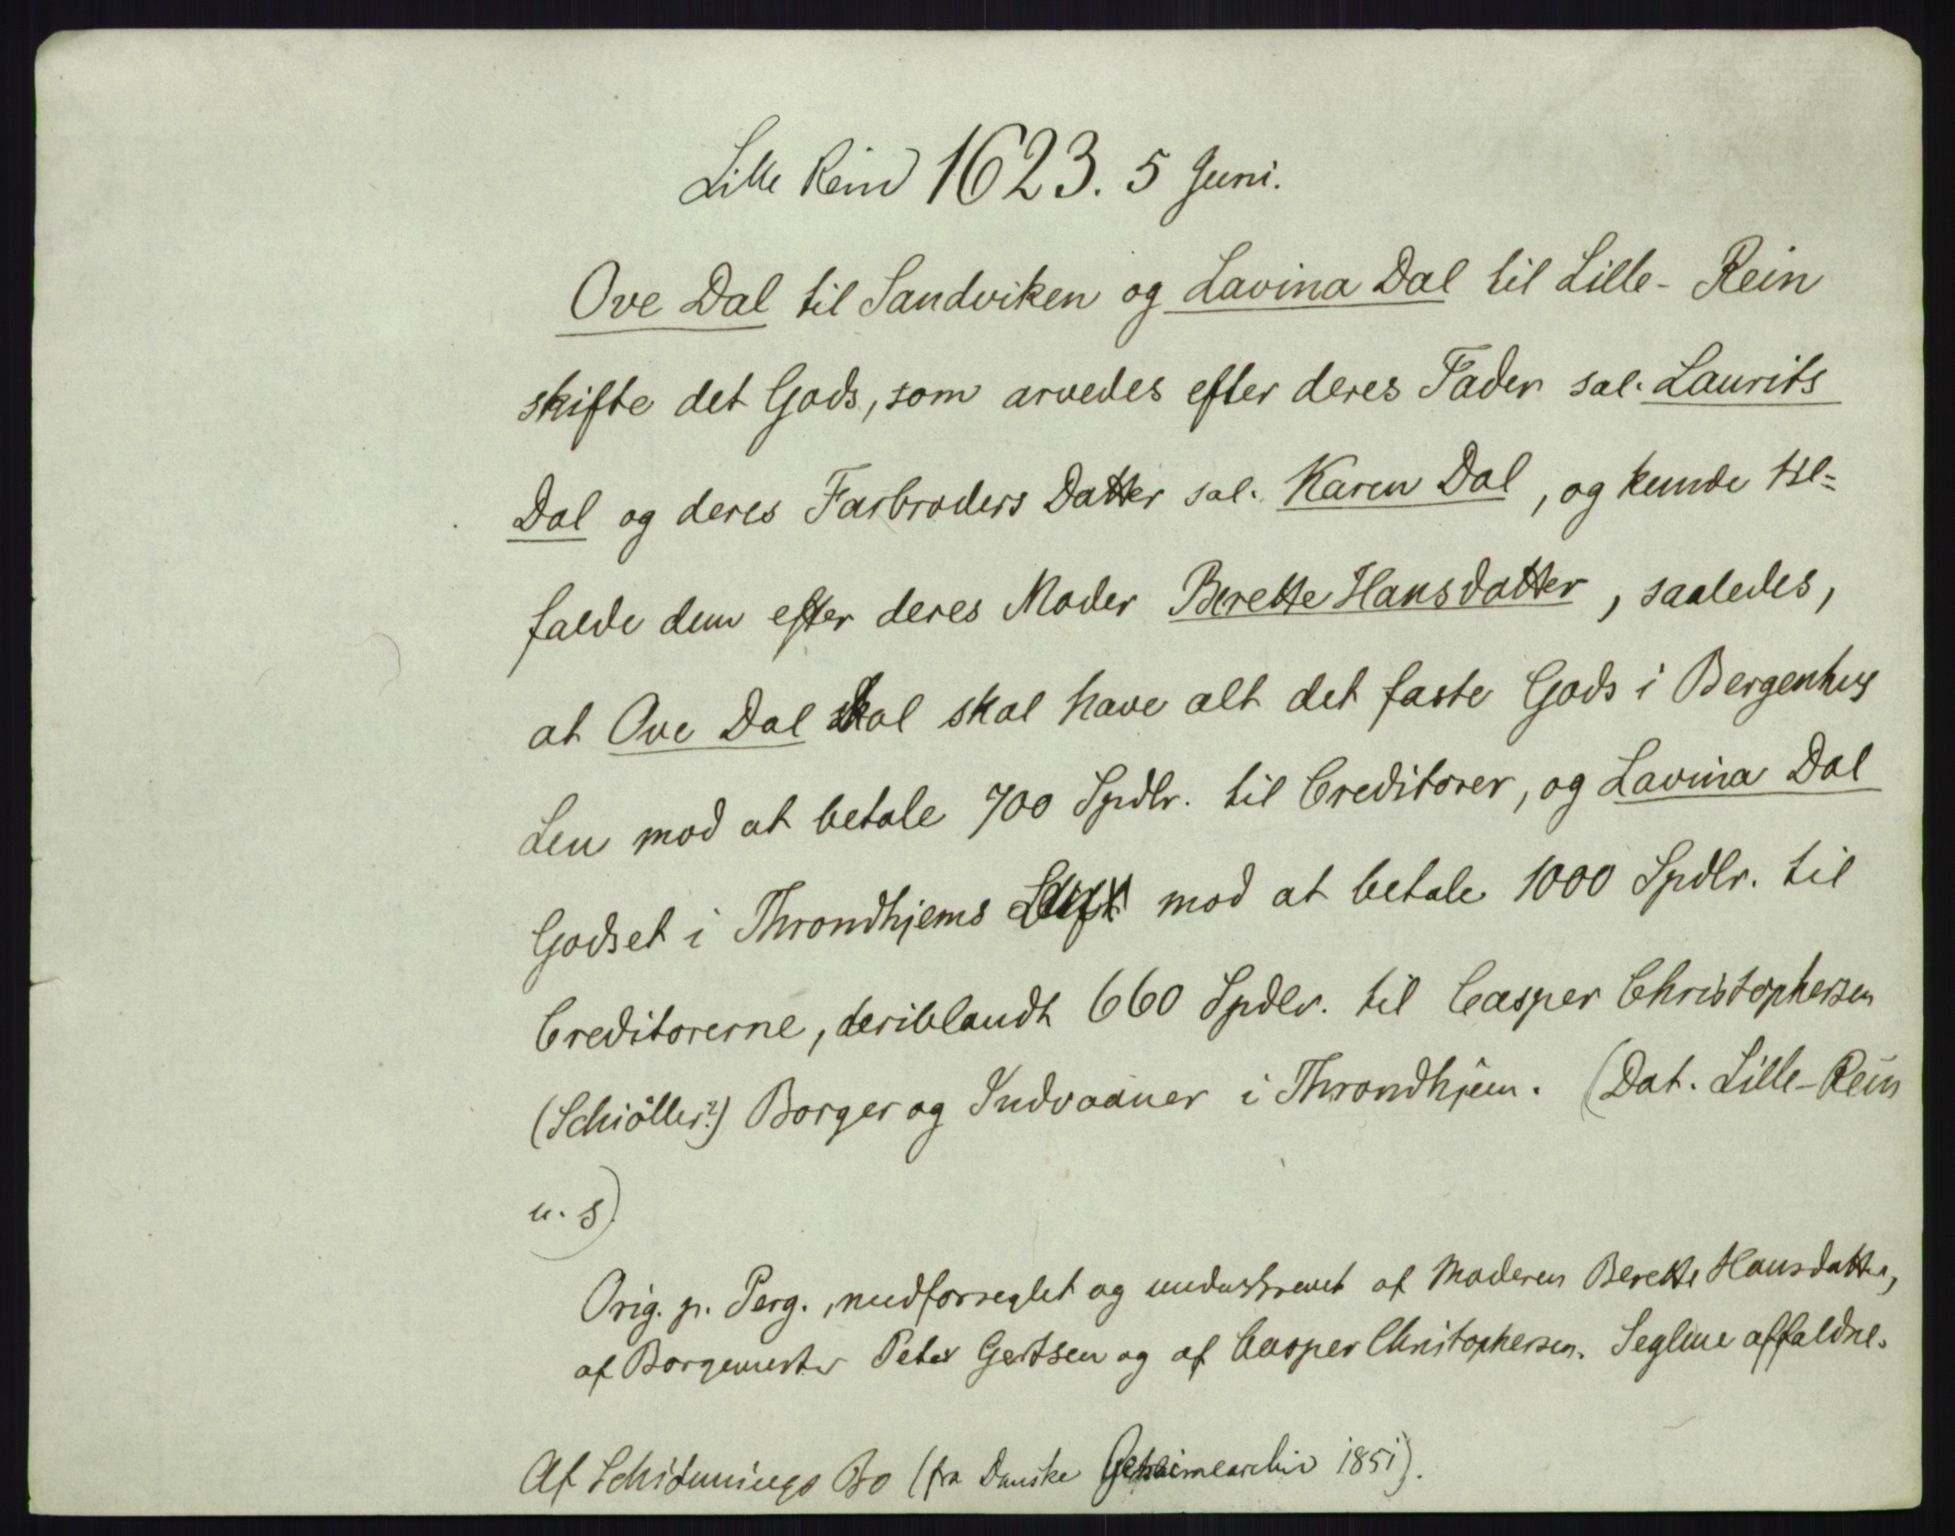 Lille Rein 1623. 5 Juni.
Ove Dal til Sandviken og Lavina Dal til Lille-Rein
skifte det Gods, som arvedes efter deres Fader sal. Laurits
Dal og deres Farbroders Datter sal. Karen Dal, og kunde til=
falde dem efter deres Moder Berette Hansdatter, saaledes,
at Ove Dal skal skal have alt det faste Gods i Bergenhus
Len mod at betale 700 Spdlr. til Creditorer, og Lavina Dal
Godset i Throndhjems mod at betale 1000 Spdlr. til
Creditorerne, deriblandt 660 Spdlr. til Casper Christophersen
(Schiöller?) Borger og Indvaaner i Throndhjem. (Dat. Lille-Rein
u. s).
Orig. p. Perg., medforseglet og underskrevet af Moderen Berette Hansdatter,
af Borgemester Peter Gertsen og af Casper Christophersen. Seglene affaldne.
Af Schiönnings Bo (fra Danske Geheimearchiv 1851).